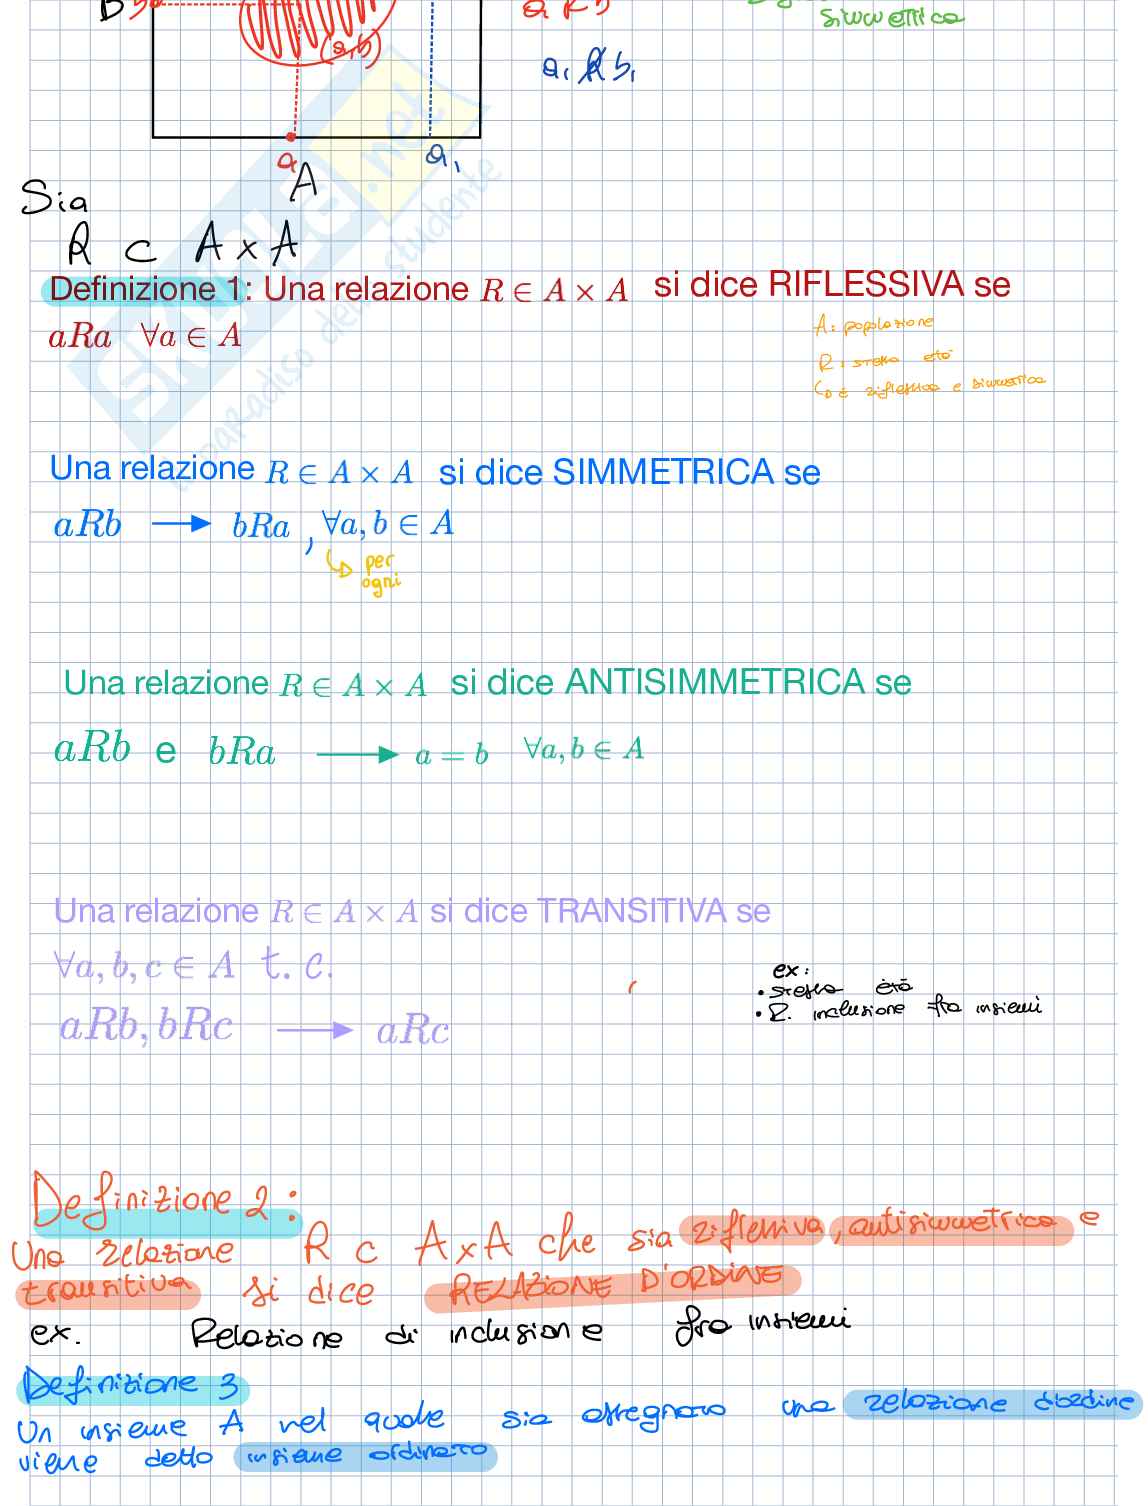 B b
(a,b)
a R b
simmetrica
a₁ R̸ b₁
a
a₁
A
Sia
R ⊂ A × A
Definizione 1: Una relazione R ∈ A × A si dice RIFLESSIVA se
aRa ∀a ∈ A
A: popolazione
R: stessa età
↳ è riflessiva e simmetrica
Una relazione R ∈ A × A si dice SIMMETRICA se
aRb → bRa , ∀a, b ∈ A
↳ per
ogni
Una relazione R ∈ A × A si dice ANTISIMMETRICA se
aRb e bRa → a = b ∀a, b ∈ A
Una relazione R ∈ A × A si dice TRANSITIVA se
∀a, b, c ∈ A t. c.
aRb, bRc → aRc
ex:
• stessa età
• R. inclusione fra insiemi
Definizione 2:
Una relazione R ⊂ A×A che sia riflessiva, antisimmetrica e
transitiva si dice RELAZIONE D'ORDINE
ex. Relazione di inclusione fra insiemi
Definizione 3
Un insieme A nel quale sia assegnato una relazione d'ordine
viene detto insieme ordinato
SKUOLA.net
il paradiso dello studente